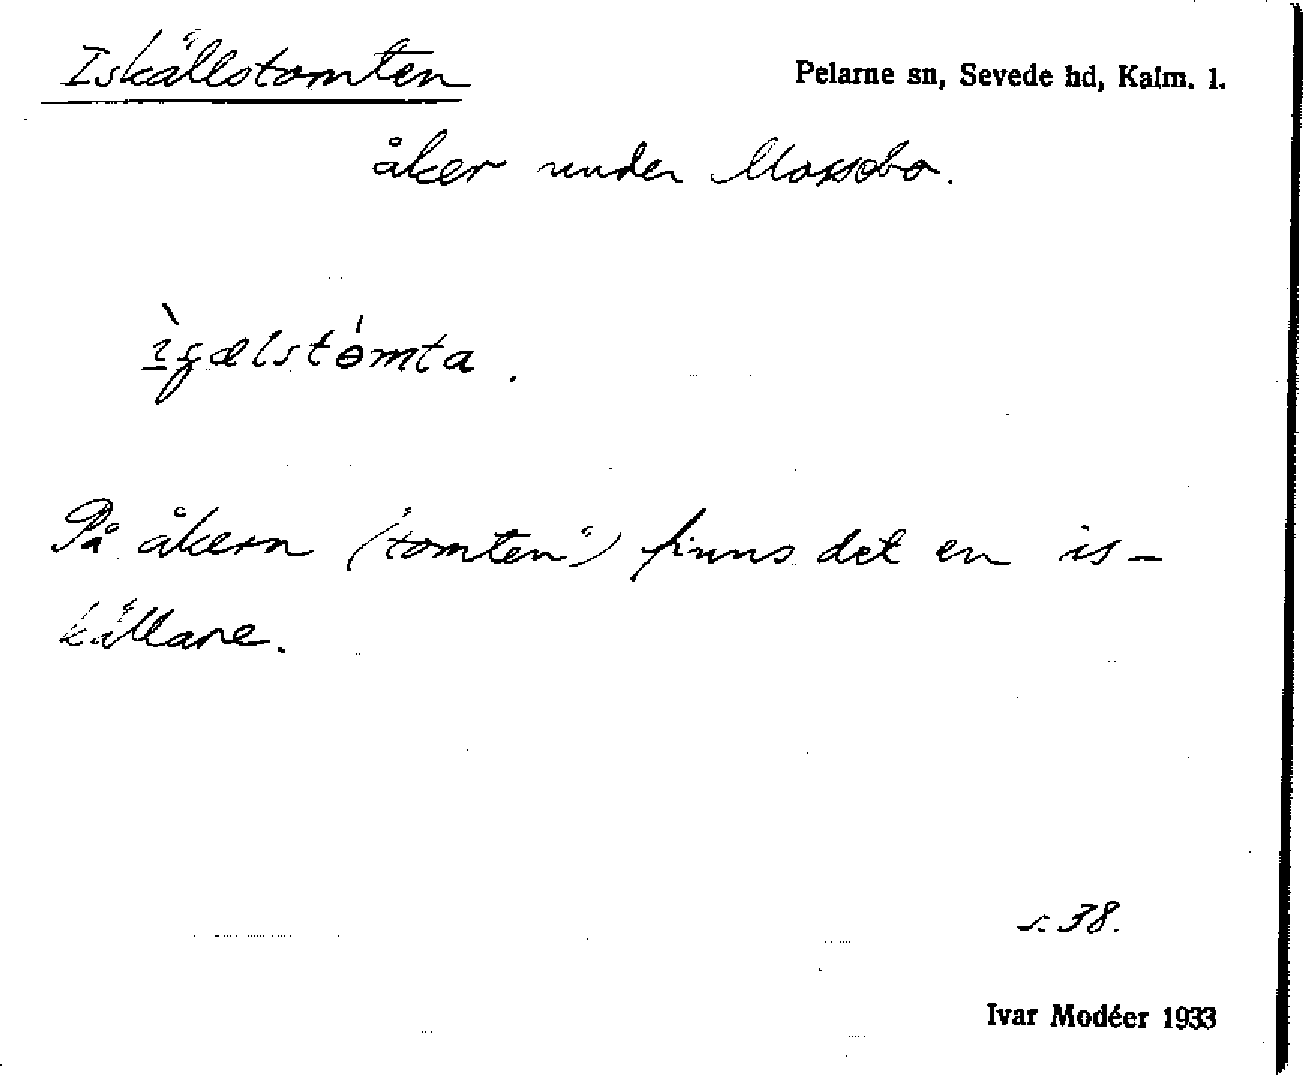 Iskällstomten
Pelarne sn, Sevede hd, Kalm. l.
åker under Mossebo.
ìʂælstómta.
På åkern ("tomten") finns det en is-
källare.
s. 38.
Ivar Modéer 1933